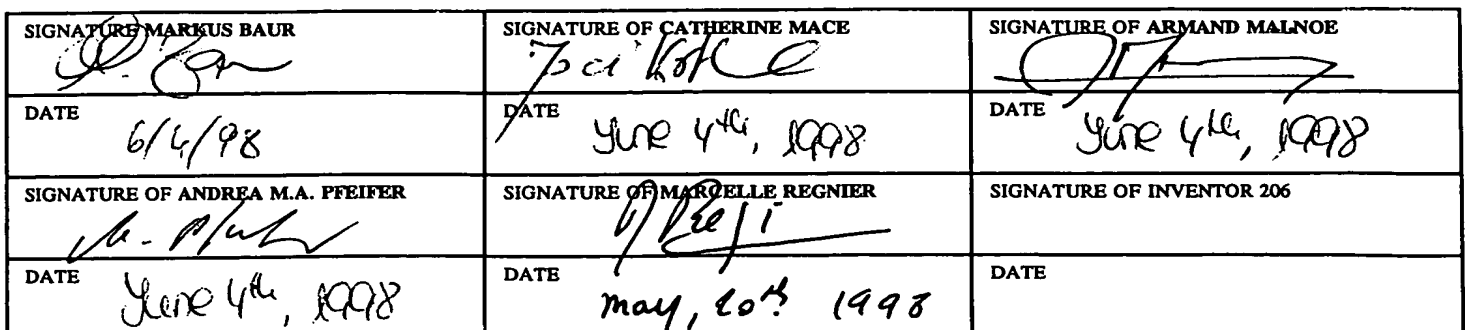 SIGNATURE MARKUS BAUR
SIGNATURE OF CATHERINE MACE
SIGNATURE OF ARMAND MALNOE
DATE
6/4/98
DATE
June 4th, 1998
DATE
June 4th, 1998
SIGNATURE OF ANDREA M.A. PFEIFER
SIGNATURE OF MARCELLE REGNIER
SIGNATURE OF INVENTOR 206
DATE
June 4th, 1998
DATE
may, 20th 1998
DATE